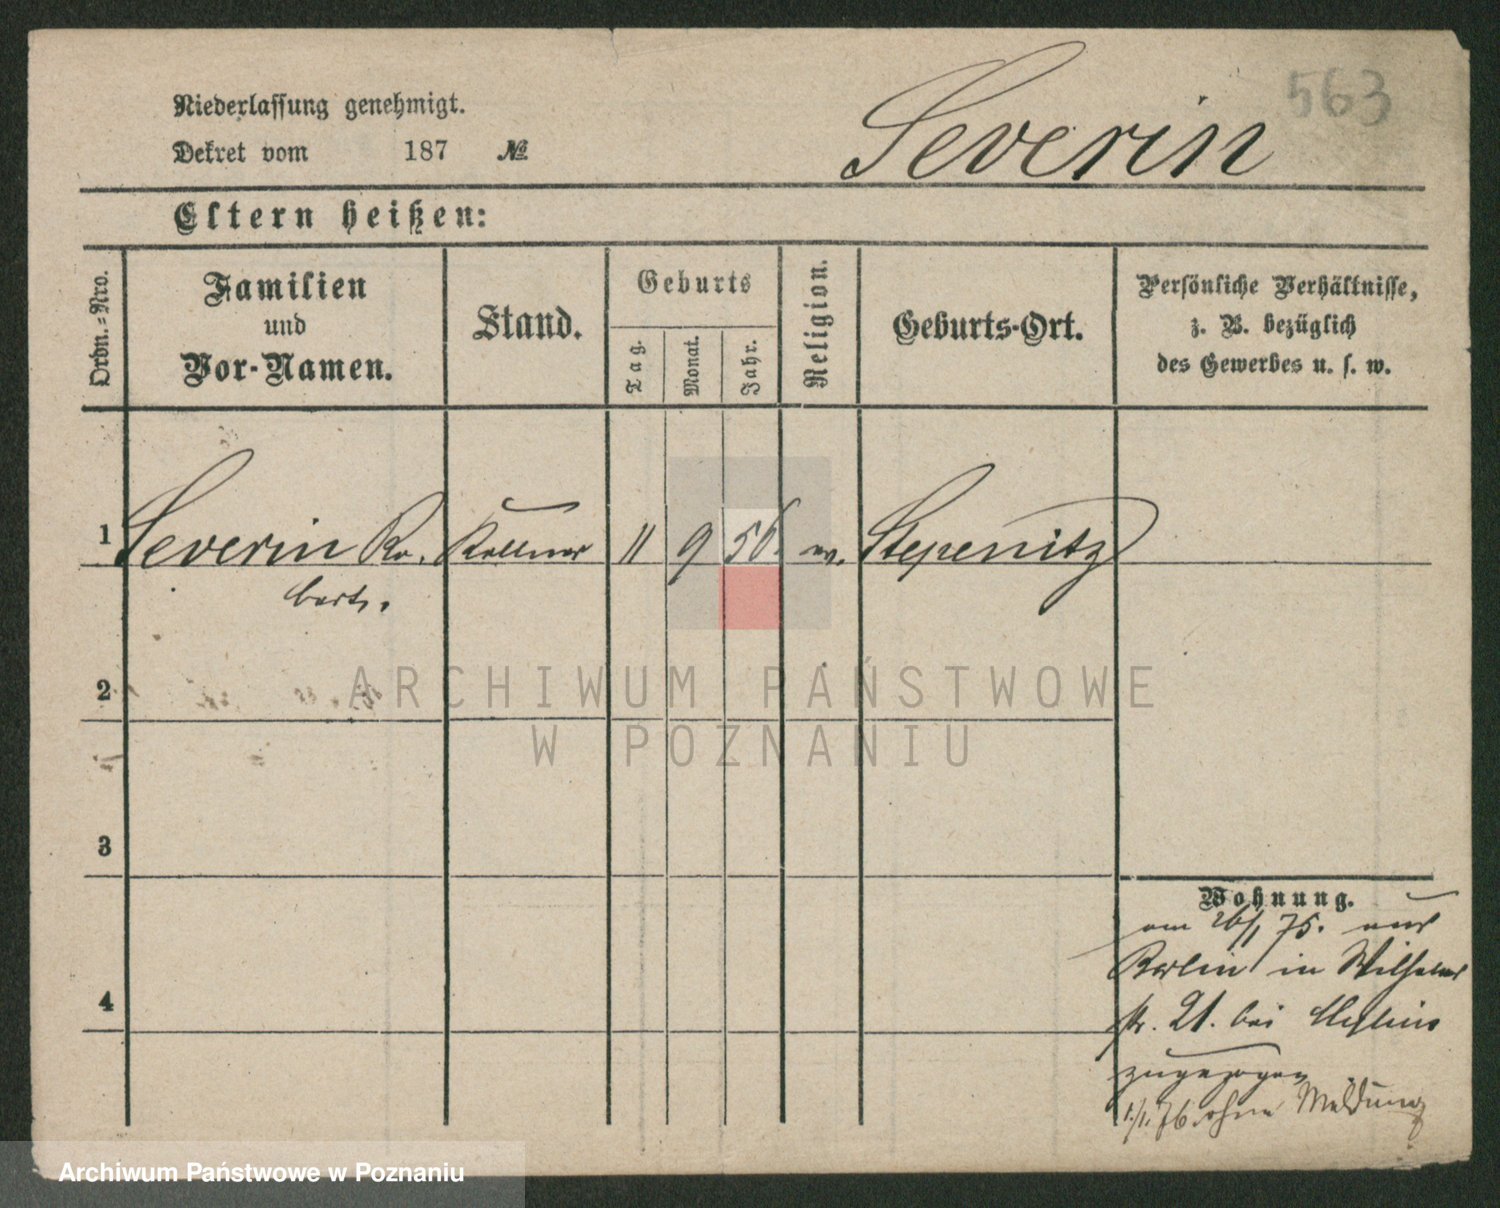 563
Severin
Niederlassung genehmigt.
Dekret vom 187 №
Eltern heißen:
Ordn.-Nro.
Familien
und
Vor-Namen.
Stand.
Geburts
Tag.
Monat.
Jahr.
Religion.
Geburts-Ort.
Persönliche Verhältnisse,
z. B. bezüglich
des Gewerbes u. s. w.
1 Severin Ro. Kellner 11 9 56. ev. Stepenitz
bert.
2
ARCHIWUM PAŃSTWOWE
W POZNANIU
3
Wohnung.
am 26/1 75. aus
Berlin in Wilhelms
str. 21. bei Mylius
4
zugezogen
1./1. 76. ohne Meldung
Archiwum Państwowe w Poznaniu